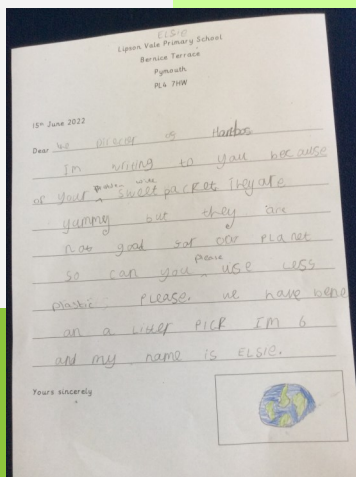 ELSIE
Lipson Vale Primary School
Bernice Terrace
Pymouth
PL4 7HW
15th June 2022
Dear the Director of Haribos
Im writing to you because
of your sweet packet They are
yummy but they are
not good for our Planet
so can you please use less
plastic. Please. we have bene
on a Litter PICK IM 6
and my name is ELSIE.
Yours sincerely